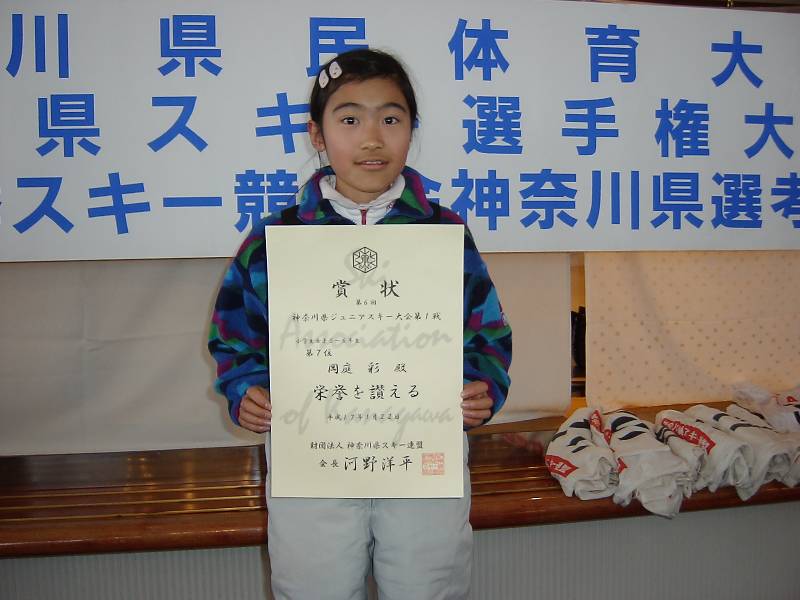 川県民体育大
県スキー選手権大
スキー競 神奈川県選考
Ski
Association
of Kanagawa
賞状
第6回
神奈川県ジュニアスキー大会第1戦
第7位
岡庭 彩 殿
栄誉を讃える
平成17年1月22日
財団法人 神奈川県スキー連盟
会長 河野洋平